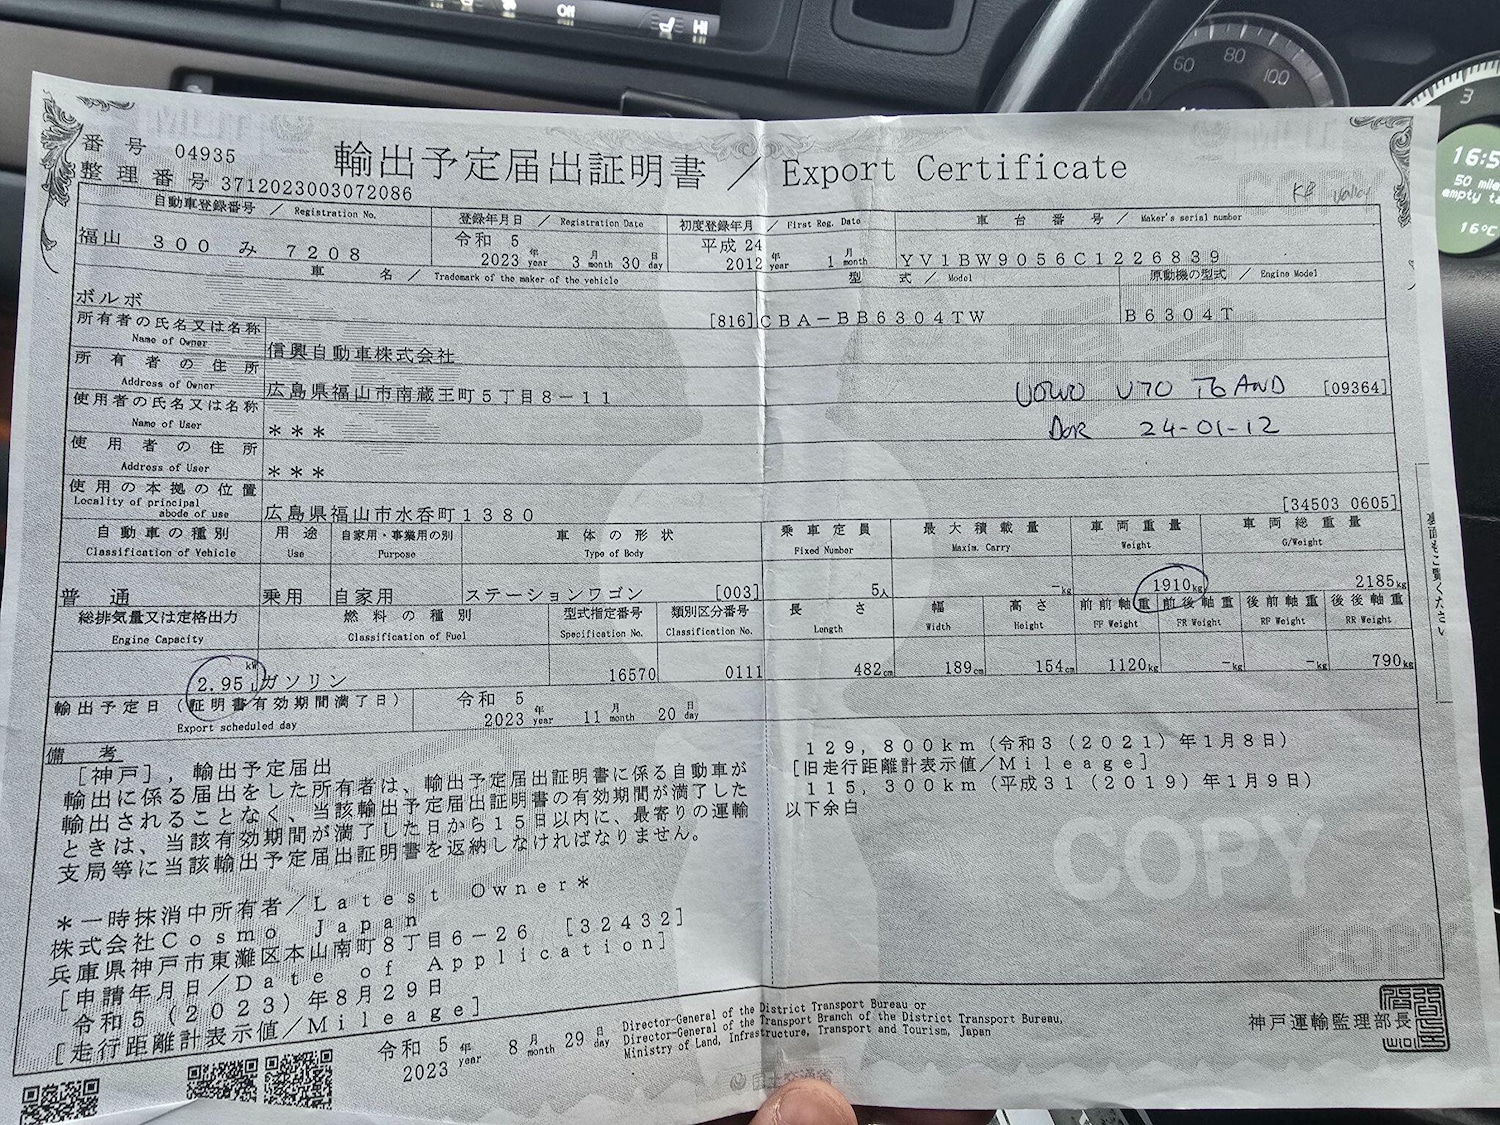 番号 04935
整理番号 3712023003072086
輸出予定届出証明書 / Export Certificate
自動車登録番号 / Registration No.
登録年月日 / Registration Date
初度登録年月 / First Reg. Date
車台番号 / Maker's serial number
福山 300 み 7208
令和 5
2023 年 year 3 月 month 30 日 day
平成 24
2012 年 year 1 月 month
YV1BW9056C1226839
車名 / Trademark of the maker of the vehicle
型式 / Model
原動機の型式 / Engine Model
ボルボ
[816] CBA-BB6304TW
B6304T
所有者の氏名又は名称
Name of Owner
信興自動車株式会社
所有者の住所
Address of Owner
広島県福山市南蔵王町5丁目8-11
[09364]
VOLVO V70 T6 AWD
DOR 24-01-12
使用者の氏名又は名称
Name of User
***
使用者の住所
Address of User
***
使用の本拠の位置
Locality of principal
abode of use
広島県福山市水呑町1380
[34503 0605]
自動車の種別 Classification of Vehicle
用途 Use
自家用・事業用の別 Purpose
車体の形状 Type of Body
乗車定員 Fixed Number
最大積載量 Maxim. Carry
車両重量 Weight
車両総重量 G/Weight
普通 乗用 自家用 ステーションワゴン [003] 5人 -kg 1910kg 2185kg
総排気量又は定格出力 Engine Capacity
燃料の種別 Classification of Fuel
型式指定番号 Specification No.
類別区分番号 Classification No.
長さ Length
幅 Width
高さ Height
前前軸重 FF Weight
前後軸重 FR Weight
後前軸重 RF Weight
後後軸重 RR Weight
kW
2.95 L ガソリン 16570 0111 482cm 189cm 154cm 1120kg -kg -kg 790kg
輸出予定日(証明書有効期間満了日)
Export scheduled day
令和 5
2023 年 year 11 月 month 20 日 day
備考
[神戸],輸出予定届出
輸出に係る届出をした所有者は、輸出予定届出証明書に係る自動車が
輸出されることなく、当該輸出予定届出証明書の有効期間が満了した
ときは、当該有効期間が満了した日から15日以内に、最寄りの運輸
支局等に当該輸出予定届出証明書を返納しなければなりません。
*一時抹消中所有者/Latest Owner*
株式会社Cosmo Japan
兵庫県神戸市東灘区本山南町8丁目6-26 [32432]
[申請年月日/Date of Application]
令和5(2023)年8月29日
[走行距離計表示値/Mileage]
129,800km(令和3(2021)年1月8日)
[旧走行距離計表示値/Mileage]
115,300km(平成31(2019)年1月9日)
以下余白
COPY
令和 5 年 8 月 29 日
2023 year month day
Director-General of the District Transport Bureau or
Director-General of the Transport Branch of the District Transport Bureau,
Ministry of Land, Infrastructure, Transport and Tourism, Japan
神戸運輸監理部長
国土交通省
裏面もご覧ください。
Off
60 80 100
3
16:5
50 mile
empty ta
16°C